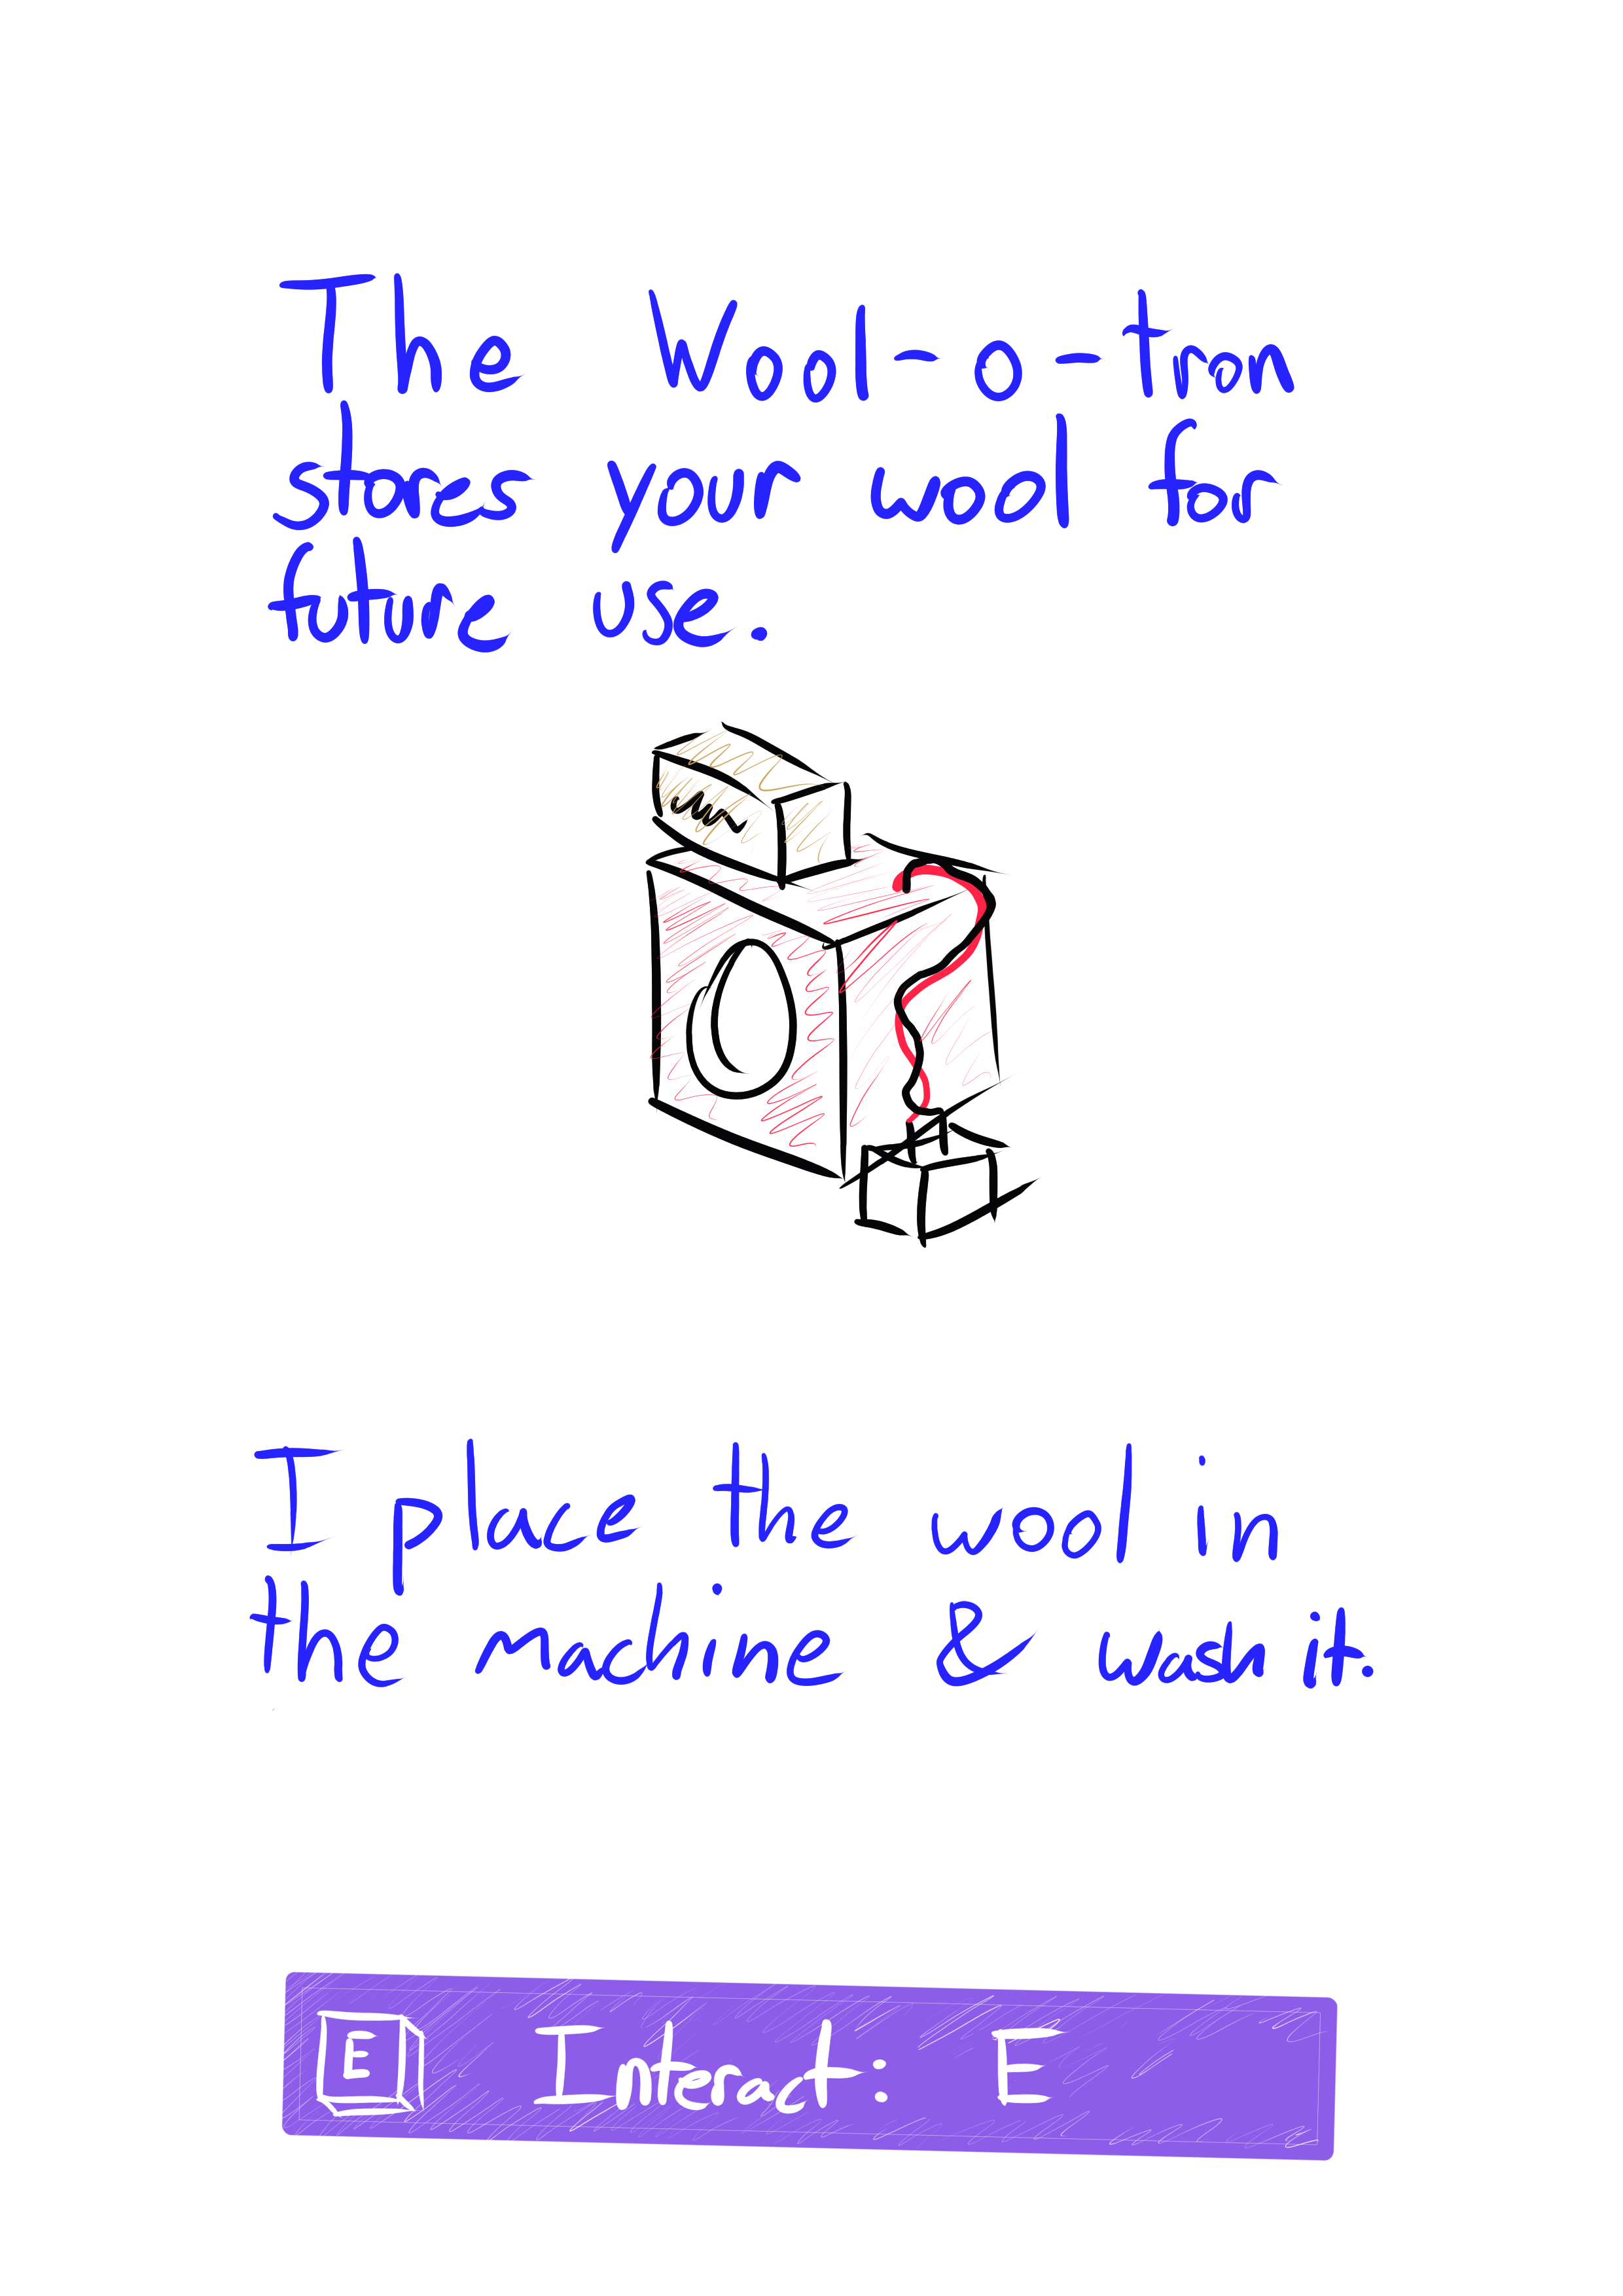 The Wool-o-tron
stores your wool for
future use.
I place the wool in
the machine & wash it.
E Interact: E